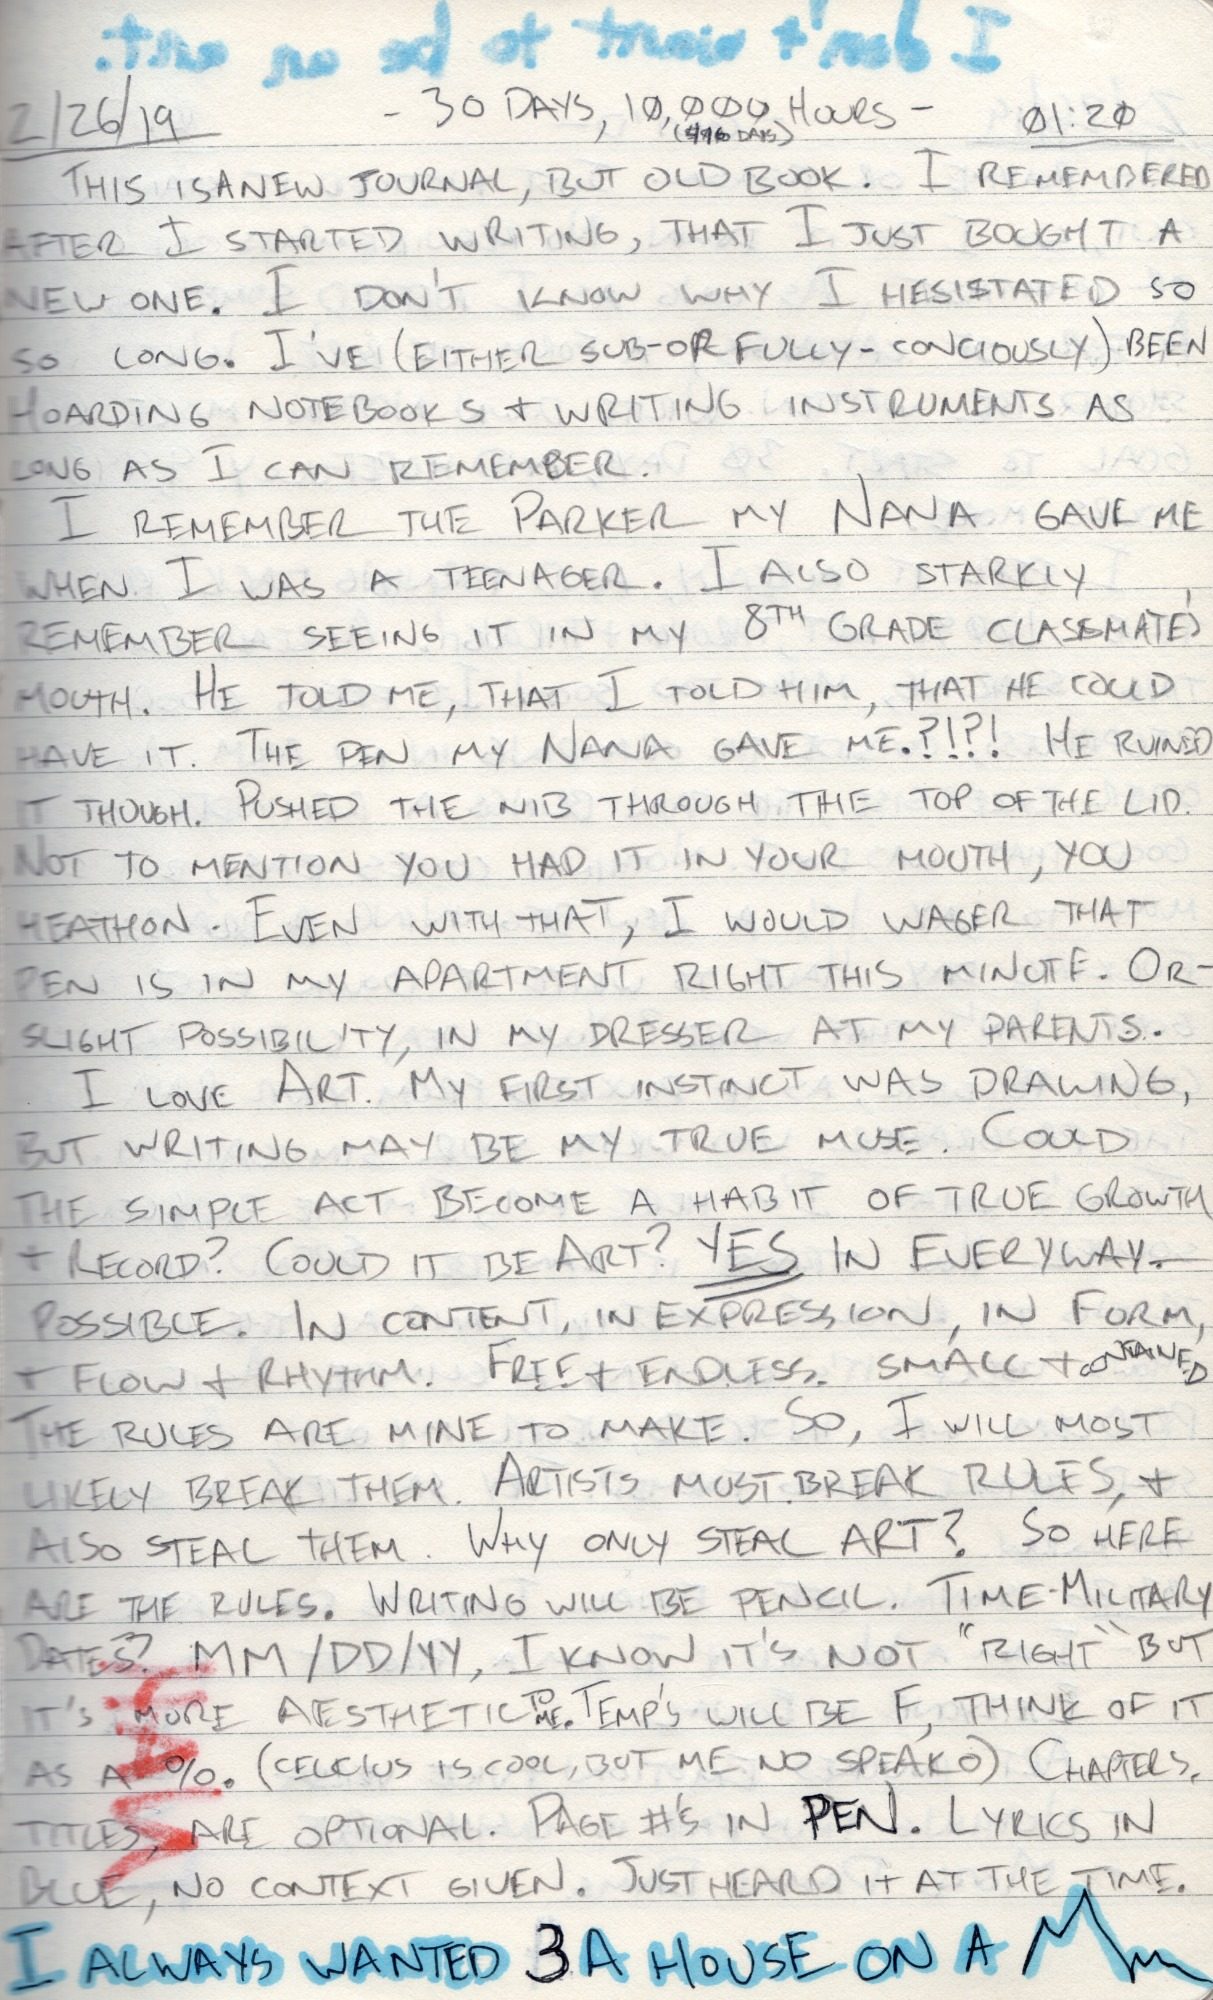 I don't want to be an artist.
2/26/19 - 30 DAYS, 10,000 HOURS - 01:20
(416 DAYS)
THIS IS A NEW JOURNAL, BUT OLD BOOK. I REMEMBERED
AFTER I STARTED WRITING, THAT I JUST BOUGHT A
NEW ONE. I DON'T KNOW WHY I HESISTATED SO
SO LONG. I'VE (EITHER SUB-OR FULLY-CONCIOUSLY) BEEN
HOARDING NOTEBOOKS + WRITING INSTRUMENTS AS
LONG AS I CAN REMEMBER.
I REMEMBER THE PARKER MY NANA GAVE ME
WHEN I WAS A TEENAGER. I ALSO STARKLY
REMEMBER SEEING IT IN MY 8TH GRADE CLASSMATE'S
MOUTH. HE TOLD ME, THAT I TOLD HIM, THAT HE COULD
HAVE IT. THE PEN MY NANA GAVE ME.?!?! HE RUINED
IT THOUGH. PUSHED THE NIB THROUGH THE TOP OF THE LID.
NOT TO MENTION YOU HAD IT IN YOUR MOUTH, YOU
HEATHON. EVEN WITH THAT, I WOULD WAGER THAT
PEN IS IN MY APARTMENT RIGHT THIS MINUTE. OR-
SLIGHT POSSIBILITY, IN MY DRESSER AT MY PARENTS.
I LOVE ART. MY FIRST INSTINCT WAS DRAWING,
BUT WRITING MAY BE MY TRUE MUSE. COULD
THE SIMPLE ACT BECOME A HABIT OF TRUE GROWTH
+ RECORD? COULD IT BE ART? YES IN EVERYWAY
POSSIBLE. IN CONTENT, IN EXPRESSION, IN FORM,
+ FLOW + RHYTHM. FREE + ENDLESS. SMALL + CONTAINED
THE RULES ARE MINE TO MAKE. SO, I WILL MOST
LIKELY BREAK THEM. ARTISTS MUST BREAK RULES, +
ALSO STEAL THEM. WHY ONLY STEAL ART? SO HERE
ARE THE RULES. WRITING WILL BE PENCIL. TIME-MILITARY
DATES? MM/DD/YY, I KNOW IT'S NOT "RIGHT" BUT
IT'S MORE AESTHETIC TO ME. TEMP'S WILL BE F, THINK OF IT
AS A %. (CELCIUS IS COOL, BUT ME NO SPEAKO) CHAPTERS,
TITLES, ARE OPTIONAL. PAGE #'S IN PEN. LYRICS IN
BLUE, NO CONTEXT GIVEN. JUST HEARD IT AT THE TIME.
I ALWAYS WANTED A HOUSE ON A
3